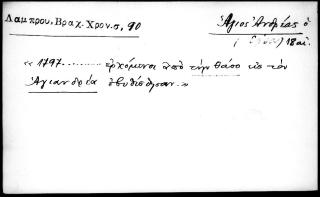 Λαμπρου, Βραχ. Χρον. σ, 90
Ἅγιος Ἀνδρέας ὁ
18 αἰ.
« 1797. ἐρχόμενοι ἀπὸ τὴν Θάσο εἰς τὸν
Ἁγιανδρέα ἐβυθίσθησαν. »